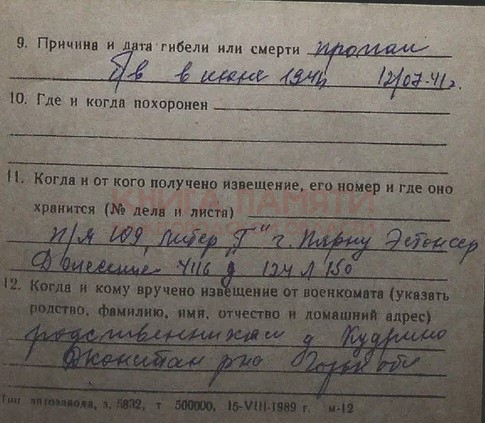 9. Причина и дата гибели или смерти пропал
б/в в июне 1941 12/07-41г.
10. Где и когда похоронен
11. Когда и от кого получено извещение, его номер и где оно
хранится (№ дела и листа)
КНИГА ПАМЯТИ
п/я 109, литер "Г" г. Пярну Эстонсер
Донесение 4116 д 124 л 150
12. Когда и кому вручено извещение от военкомата (указать
родство, фамилию, имя, отчество и домашний адрес)
родственникам д Кудрино
рно Горьк обл
Тип. автозавода, з. 5832, т 500000, 15-VIII-1989 г. м-12